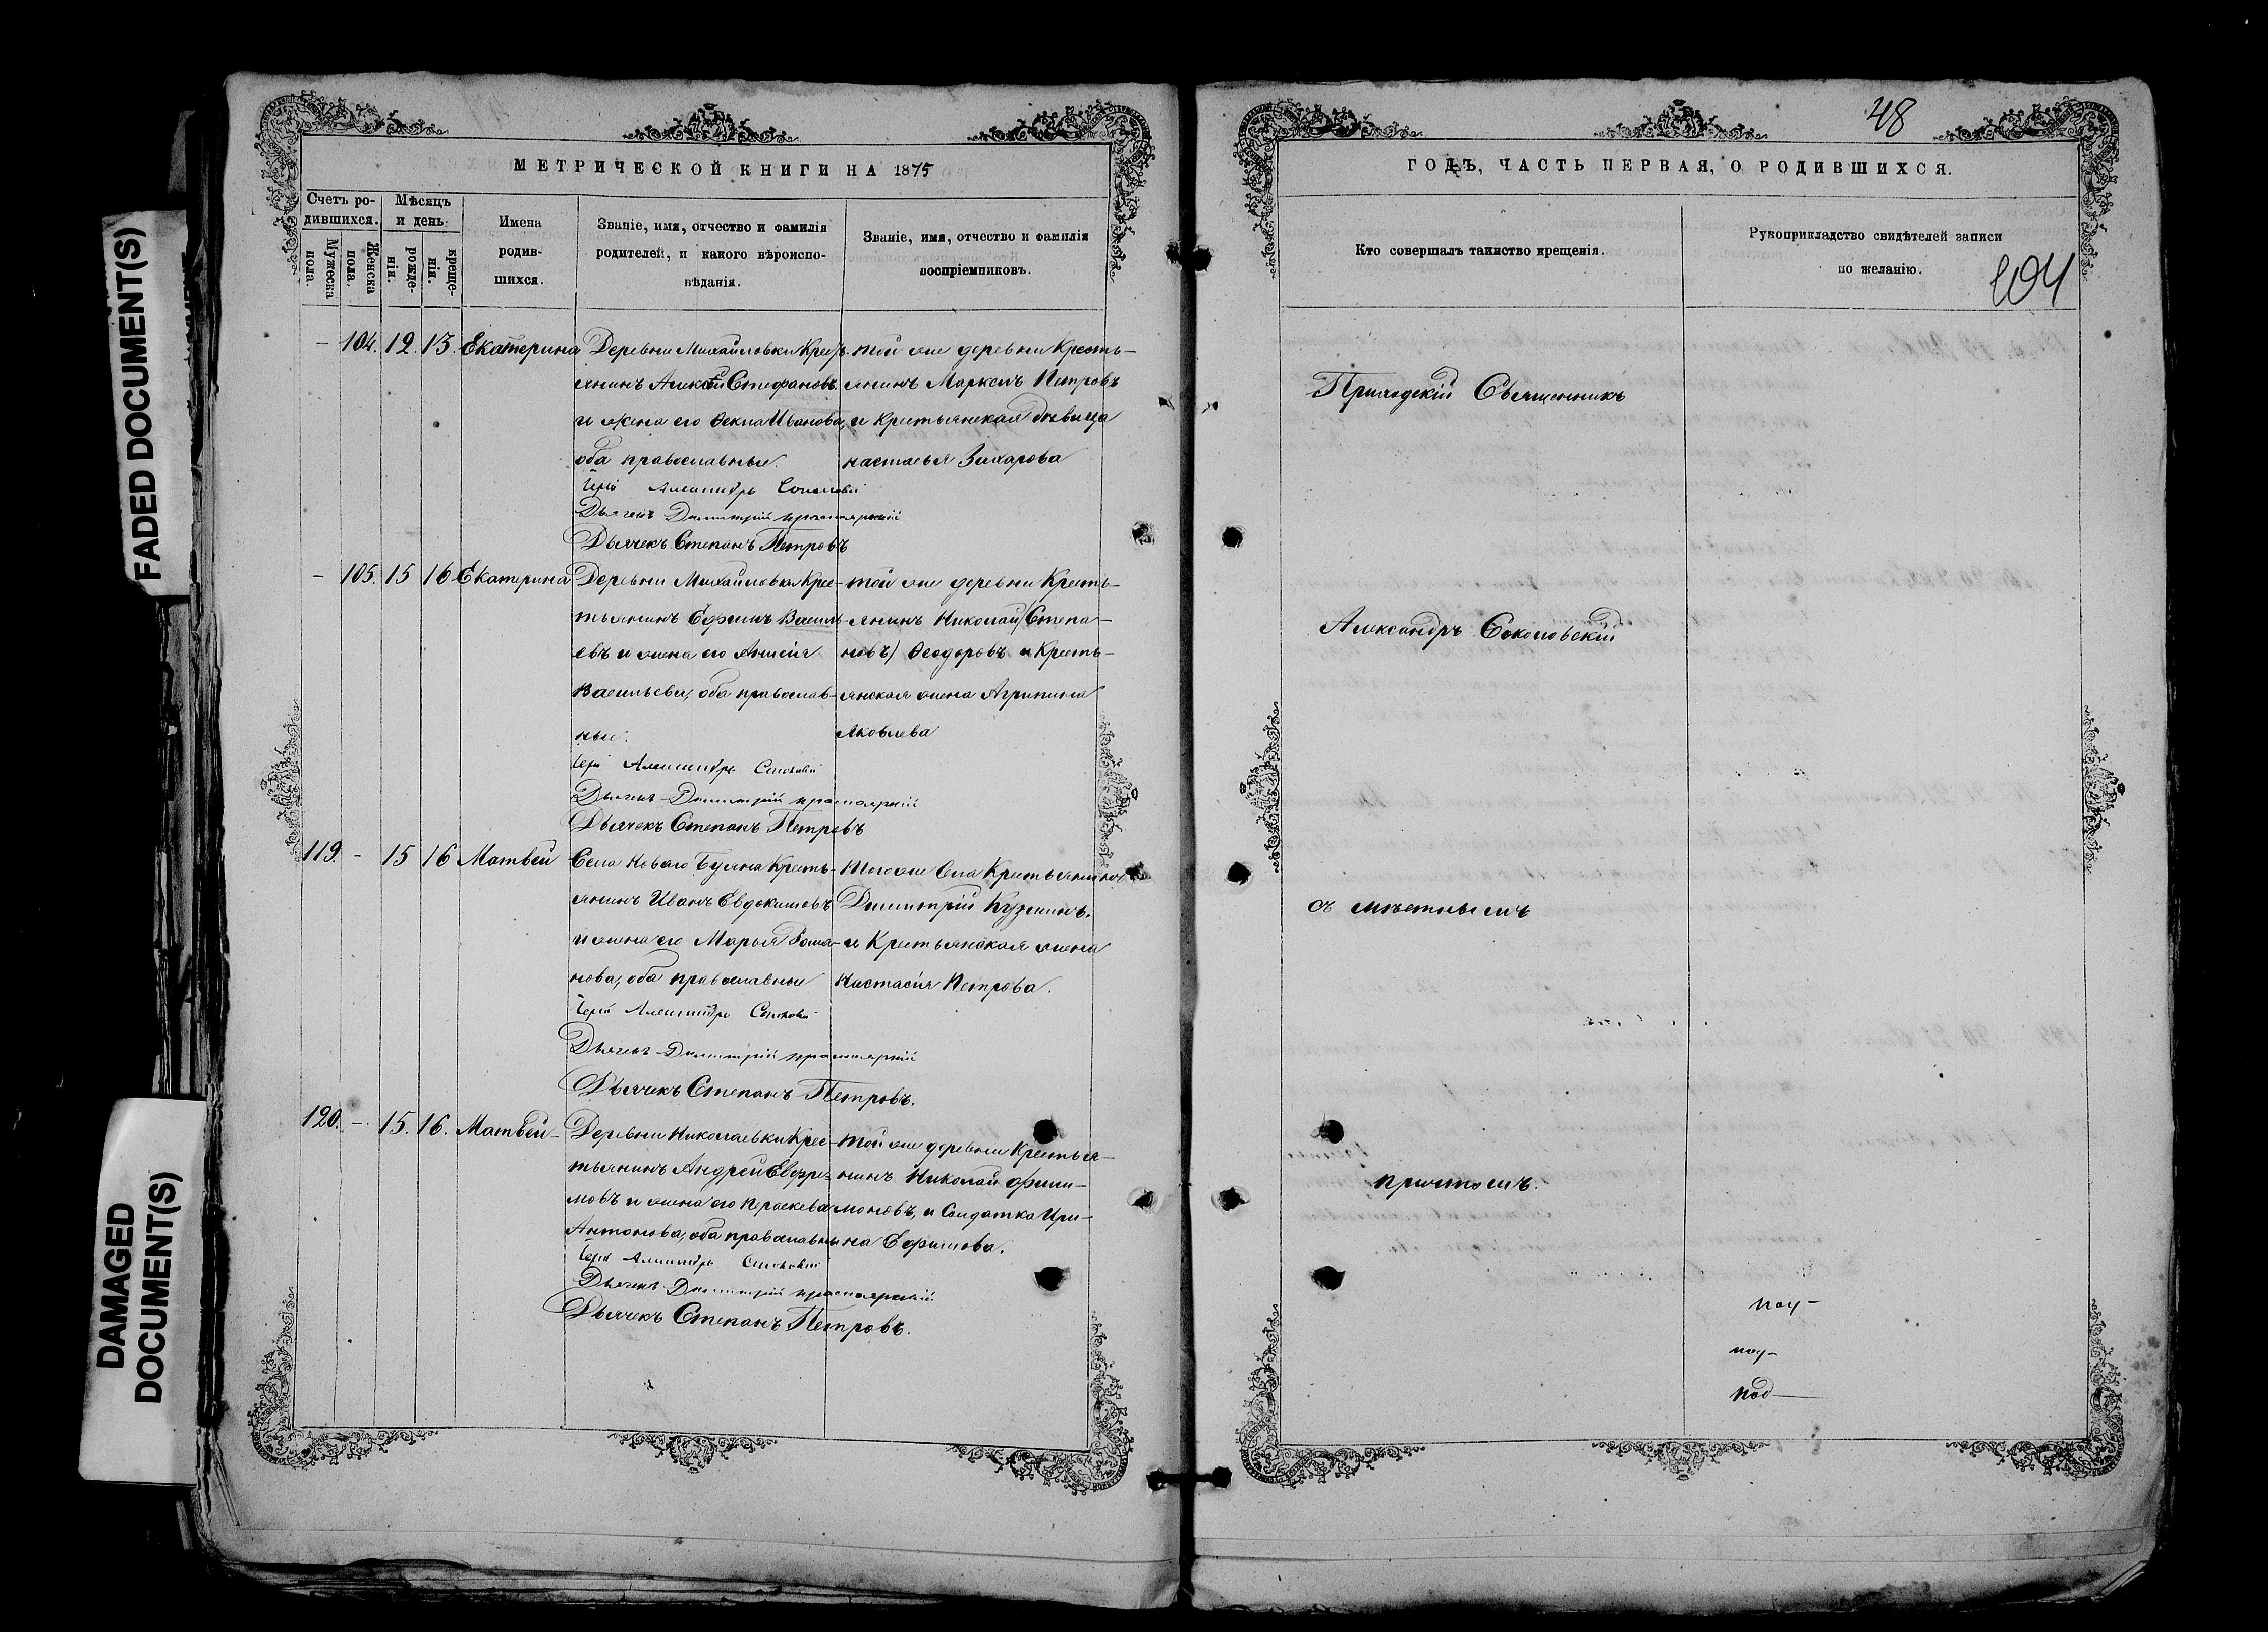 FADED DOCUMENT(S)
DAMAGED DOCUMENT(S)
МЕТРИЧЕСКОЙ КНИГИ НА 1875
Счетъ ро-
дившихся.
Мужеска пола.
Женска пола.
Мѣсяцъ
и день
рожде-
нія.
креще-
нія.
Имена
родив-
шихся.
Званіе, имя, отчество и фамилія
родителей, и какого вѣроиспо-
вѣданія.
Званіе, имя, отчество и фамилія
воспріемниковъ.
– 104. 12. 13. Екатерина
Деревни Михайловки Кресть-
янинъ Алексѣй Стефановъ
и жена его Ѳекла Иванова,
оба православные.
Дьячекъ Степанъ Петровъ
той же деревни Кресть-
янинъ Маркелъ Петровъ
и крестьянская дѣвица
Настасья Захарова
– 105. 15 16 Екатерина
Деревни Михайловки Крес-
тьянинъ Ефимъ Василь-
евъ и жена его Анисія
Васильева, оба православ-
ные.
Дьячекъ Степанъ Петровъ
той же деревни Кресть-
янинъ Николай (Степа-
новъ) Ѳеодоровъ и Кресть-
янская жена Агрипина
Яковлева
119. – 15 16 Матвей
Села Новаго Буяна Кресть-
янинъ Иванъ Евдокимовъ
и жена его Марья Рома-
нова, оба православные
Дьячекъ Степанъ Петровъ.
того же Села Крестьянинъ
Димитрій Кузминъ.
и Крестьянская жена
Настасія Петрова.
120. – 15. 16. Матвей
Деревни Николаевки Крес-
тьянинъ Андрей Евфре-
мовъ и жена его Параскева
Антонова, оба православны
Дьячекъ Степанъ Петровъ.
той же деревни Крестья-
нинъ Николай Фили-
моновъ, и Солдатка Ири-
на Ефимова.
48
ГОДЪ, ЧАСТЬ ПЕРВАЯ, О РОДИВШИХСЯ.
Кто совершалъ таинство крещенія.
Рукоприкладство свидѣтелей записи
по желанію.
104
Приходскій Священникъ
Александръ Соколовскій
съ мѣстнымъ
причтомъ.
под-